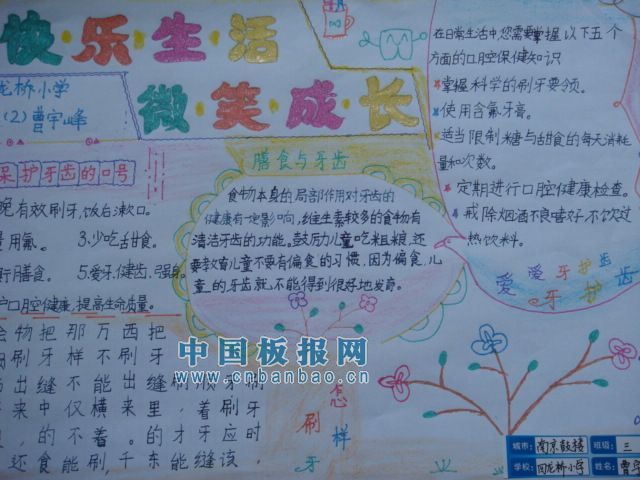 快乐生活
微笑成长
龙桥小学
(2)曹宇峰
保护牙齿的口号
晚有效刷牙,饭后漱口。
用氟。 3.少吃甜食。
膳食。 5.爱牙,健齿,强身。
护口腔健康,提高生命质量。
膳食与牙齿
食物本身的局部作用对牙齿的
健康有一定影响,维生素较多的食物有
清洁牙齿的功能。鼓历儿童吃粗粮,还
要教育儿童不要有偏食的习惯,因为偏食儿
童的牙齿就不能得到很好地发育。
在日常生活中,您需要掌握以下五个
方面的口腔保健知识
掌握科学的刷牙要领。
使用含氟牙膏。
适当限制糖与甜食的每天消耗
量和次数。
定期进行口腔健康检查。
戒除烟酒不良嗜好不饮过
热饮料。
爱爱牙护齿
牙护齿
物把那万西把
刷牙样不刷牙
出缝不能出缝刷
来中仅横来里,着刷牙
,的不着。的才牙应时
还食能刷,千东能缝该,
怎样
刷
牙
中国板报网
www.cnbanbao.cn
城市: 南京鼓楼 班级: 三
学校: 回龙桥小学 姓名: 曹宇